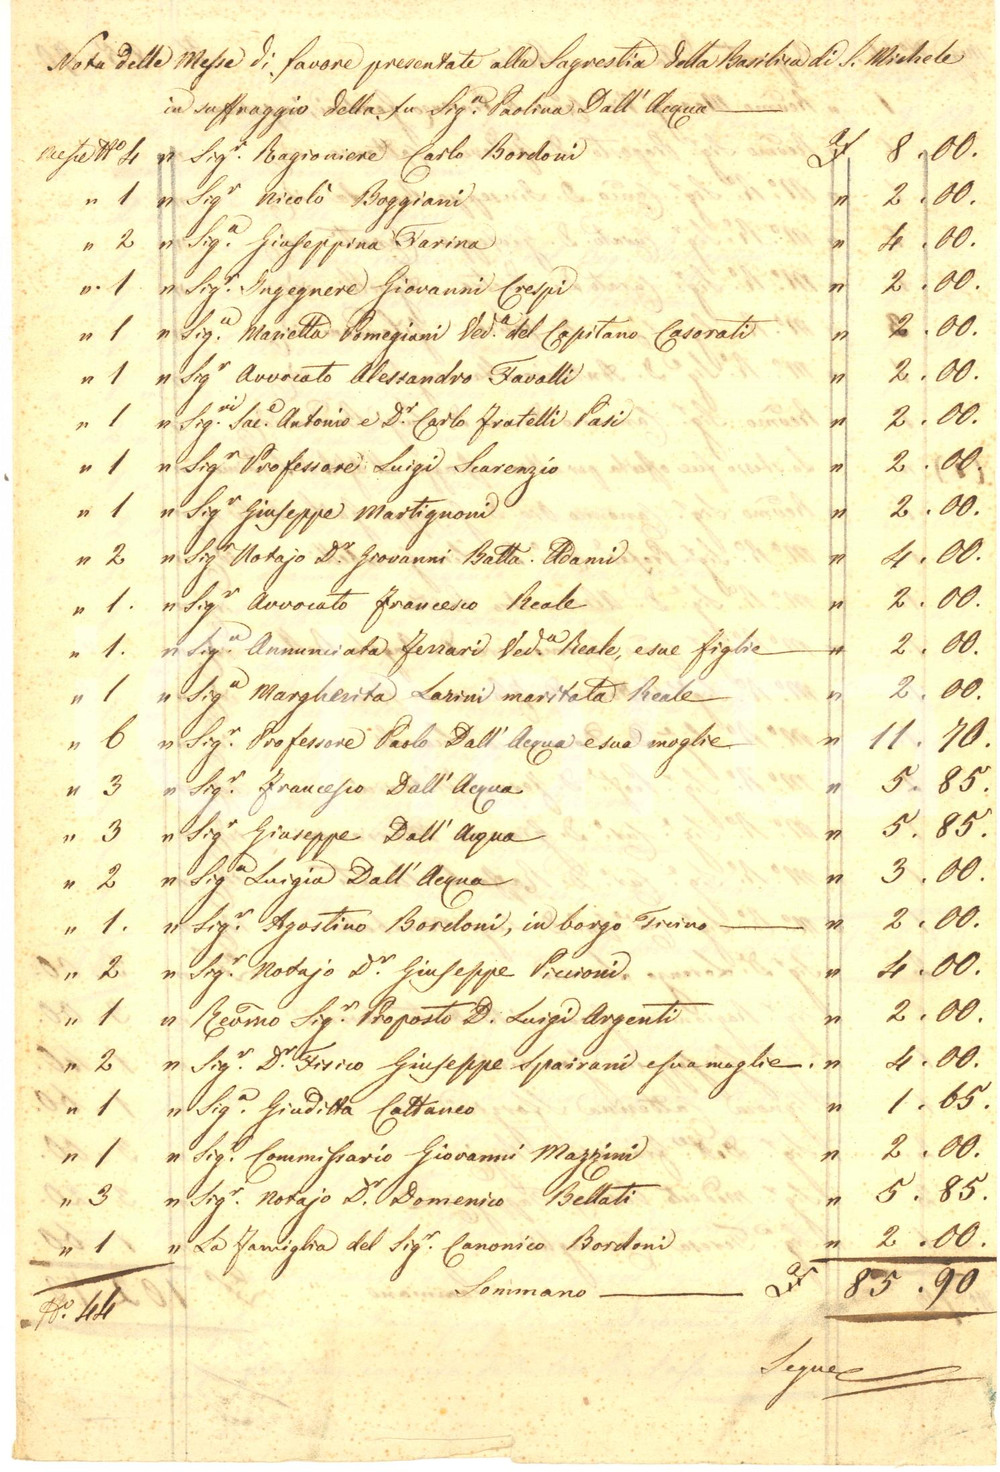 Nota delle Messe di favore presentate alla Sagrestia della Basilica di S. Michele
in suffraggio della fu Sig.a Paolina Dall' Acqua
Messe N.o 4 " Sig.r Ragioniere Carlo Bordoni 8.00.
" 1 " Sig.r Nicolò Boggiani " 2.00.
" 2 " Sig.a Giuseppina Farina " 4.00.
" 1 " Sig.r Ingegnere Giovanni Crespi " 2.00.
" 1 " Sig.a Marietta Pomegiani Ved.a del Capitano Casorati " 2.00.
" 1 " Sig.r Avvocato Alessandro Favalli " 2.00.
" 1 " Sig.ri Sac.e Antonio e D.r Carlo fratelli Pasi " 2.00.
" 1 " Sig.r Professore Luigi Scarenzio " 2.00.
" 1 " Sig.r Giuseppe Martignoni " 2.00.
" 2 " Sig.r Notajo D.r Giovanni Batta. Adami " 4.00.
" 1. " Sig.r Avvocato Francesco Reale " 2.00.
" 1. " Sig.a Annunciata Ferrari Ved.a Reale, e sue figlie " 2.00.
" 1 " Sig.a Margherita Larini maritata Reale " 2.00.
" 6 " Sig.r Professore Paolo Dall' Acqua e sua moglie " 11.70.
" 3 " Sig.r Francesco Dall' Acqua " 5.85.
" 3 " Sig.r Giuseppe Dall' Acqua " 5.85.
" 2 " Sig.a Luigia Dall' Acqua " 3.00.
" 1. " Sig.r Agostino Bordoni, in borgo Ticino " 2.00.
" 2 " Sig.r Notajo D.r Giuseppe Piccioni " 4.00.
" 1 " Revmo Sig.r Proposto D. Luigi Argenti " 2.00.
" 2 " Sig.r D.r Fisico Giuseppe Spairani e sua moglie. " 4.00.
" 1 " Sig.a Giuditta Cattaneo " 1.65.
" 1 " Sig.r Commissario Giovanni Mazzini " 2.00.
" 3 " Sig.r Notajo D.r Domenico Bellati " 5.85.
" 1 " La Famiglia del Sig.r Canonico Bordoni " 2.00.
N.o 44 Sommano 85.90
Segue